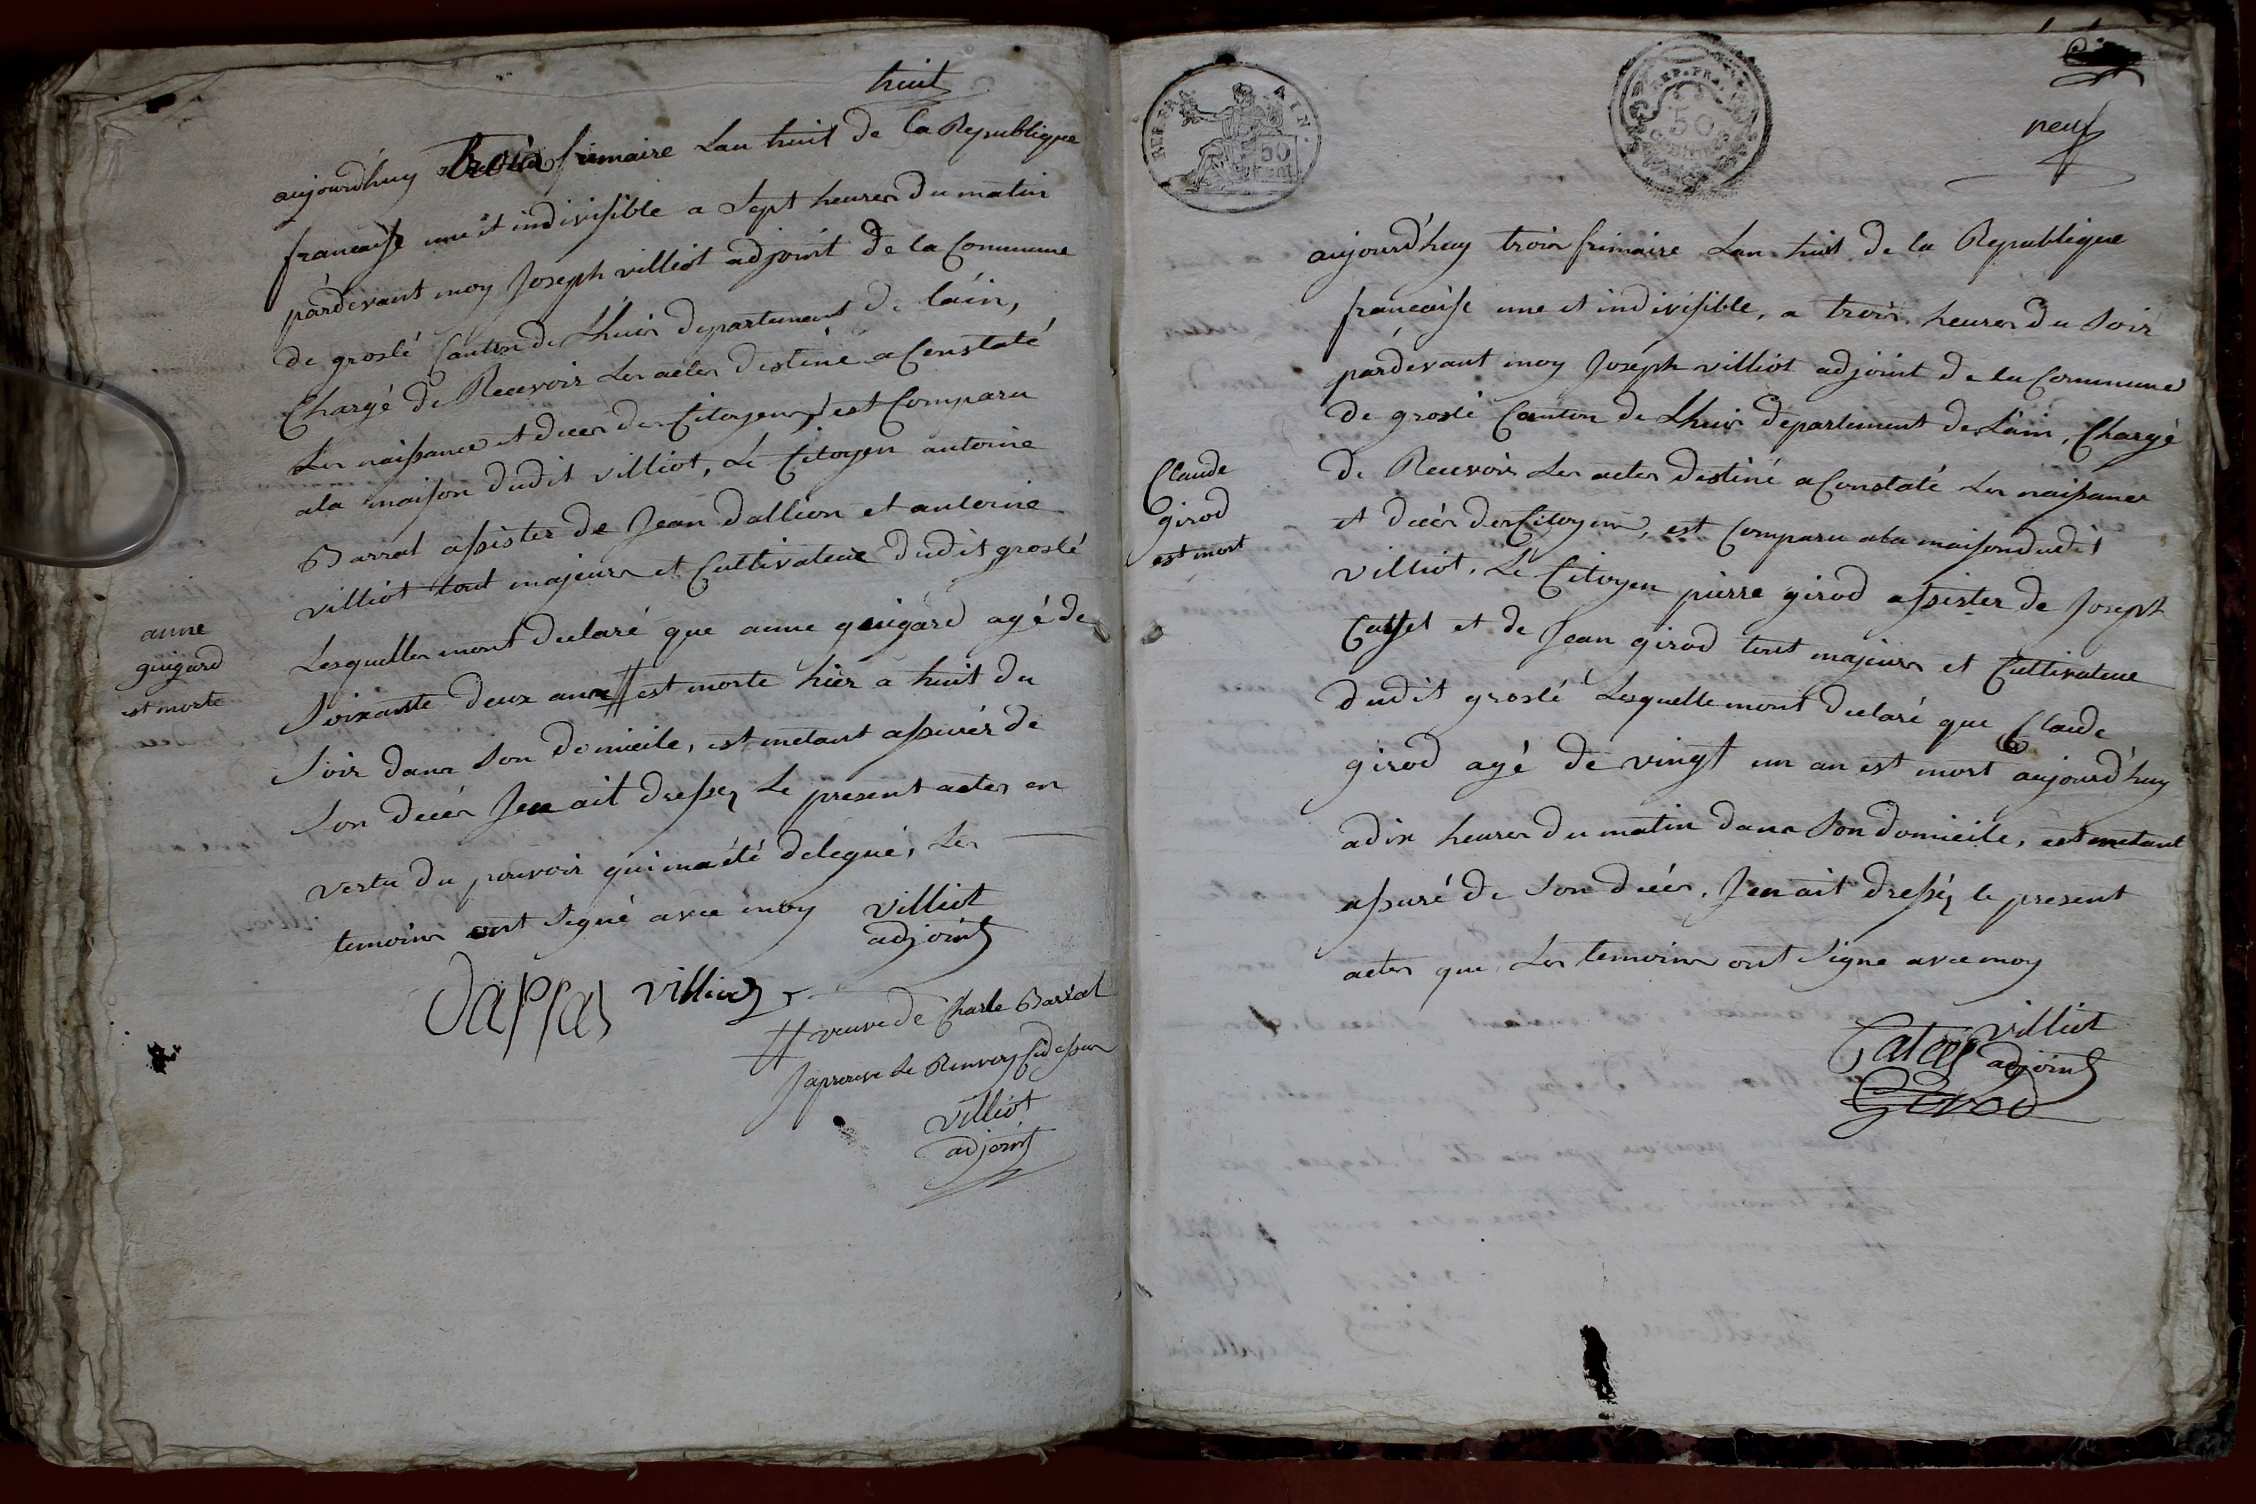 huit
aujourd'huy trois frimaire Lan huit de la Republique
francaise une et indivisible a Sept heures du matin
pardevant moy Joseph villiot adjoint de la Commune
de groslé Canton de Lhuis departement de lain,
Chargé de Recevoir Les actes destiné a Constaté
Les naissance et deces des Citoyens, est Comparu
ala maison dudit villiot, Le Citoyen antoine
Barral assister de Jean dallion et antoine
villiot tout majeurs et Cultivateur dudit groslé
Lesquelles mont declaré que anne guigard agé de
Soixante deux ans # est morte hier a huit du
Soir dans Son domicile, est metant assurés de
Son deces Jen ait dressez Le present actes en
vertu du pouvoir qui ma été delegué, Les
temoins ont Signé avec moy villiot
adjoint
villiot
# veuve de Charle Barral
Japreuve Le Renvoy Cidessus
villiot
adjoint
anne
guigard
est morte
REP. FRA. AIN.
50
cent
REP. FRA.
50
CENTIMES
neuf
aujourd'huy trois frimaire Lan huit de la Republique
francaise une et indivisible, a trois heures du Soir
pardevant moy Joseph villiot adjoint de la Commune
de groslé Canton de Lhuis departement de Lain, Chargé
de Recevoir Les actes destiné a Constaté Les naissance
et deces des Citoyens, est Comparu ala maison dudit
villiot, Le Citoyen pierre girod assister de Joseph
et de Jean girod tout majeurs et Cultivateur
dudit groslé Lesquelle mont declaré que Claude
girod agé de vingt un an est mort aujourd'huy
adix heures du matin dans Son domicile, est metant
assuré de Son deces, Jen ait dressez le present
actes que Les temoins ont Signe avec moy
villiot
adjoint
Girod
Claude
girod
est mort